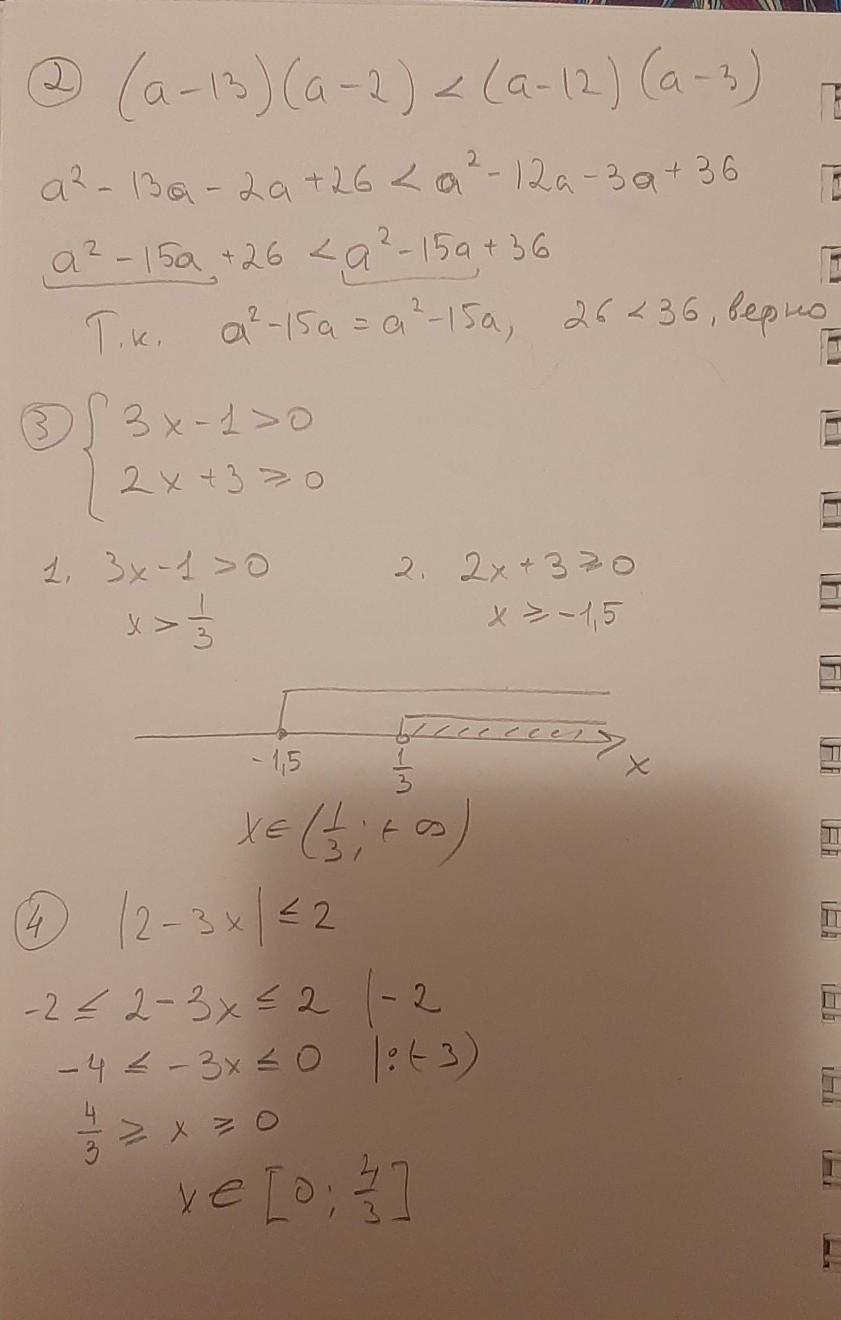 ② (a-13)(a-2) < (a-12)(a-3)
a² - 13a - 2a + 26 < a² - 12a - 3a + 36
a² - 15a + 26 < a² - 15a + 36
Т.к. a² - 15a = a² - 15a, 26 < 36, верно
③ { 3x - 1 > 0
2x + 3 ⩾ 0
1. 3x - 1 > 0 2. 2x + 3 ⩾ 0
x > 1/3 x ⩾ -1,5
-1,5 1/3 x
x ∈ (1/3; +∞)
④ |2 - 3x| ≤ 2
-2 ≤ 2 - 3x ≤ 2 |-2
-4 ≤ -3x ≤ 0 |:(-3)
4/3 ⩾ x ⩾ 0
x ∈ [0; 4/3]